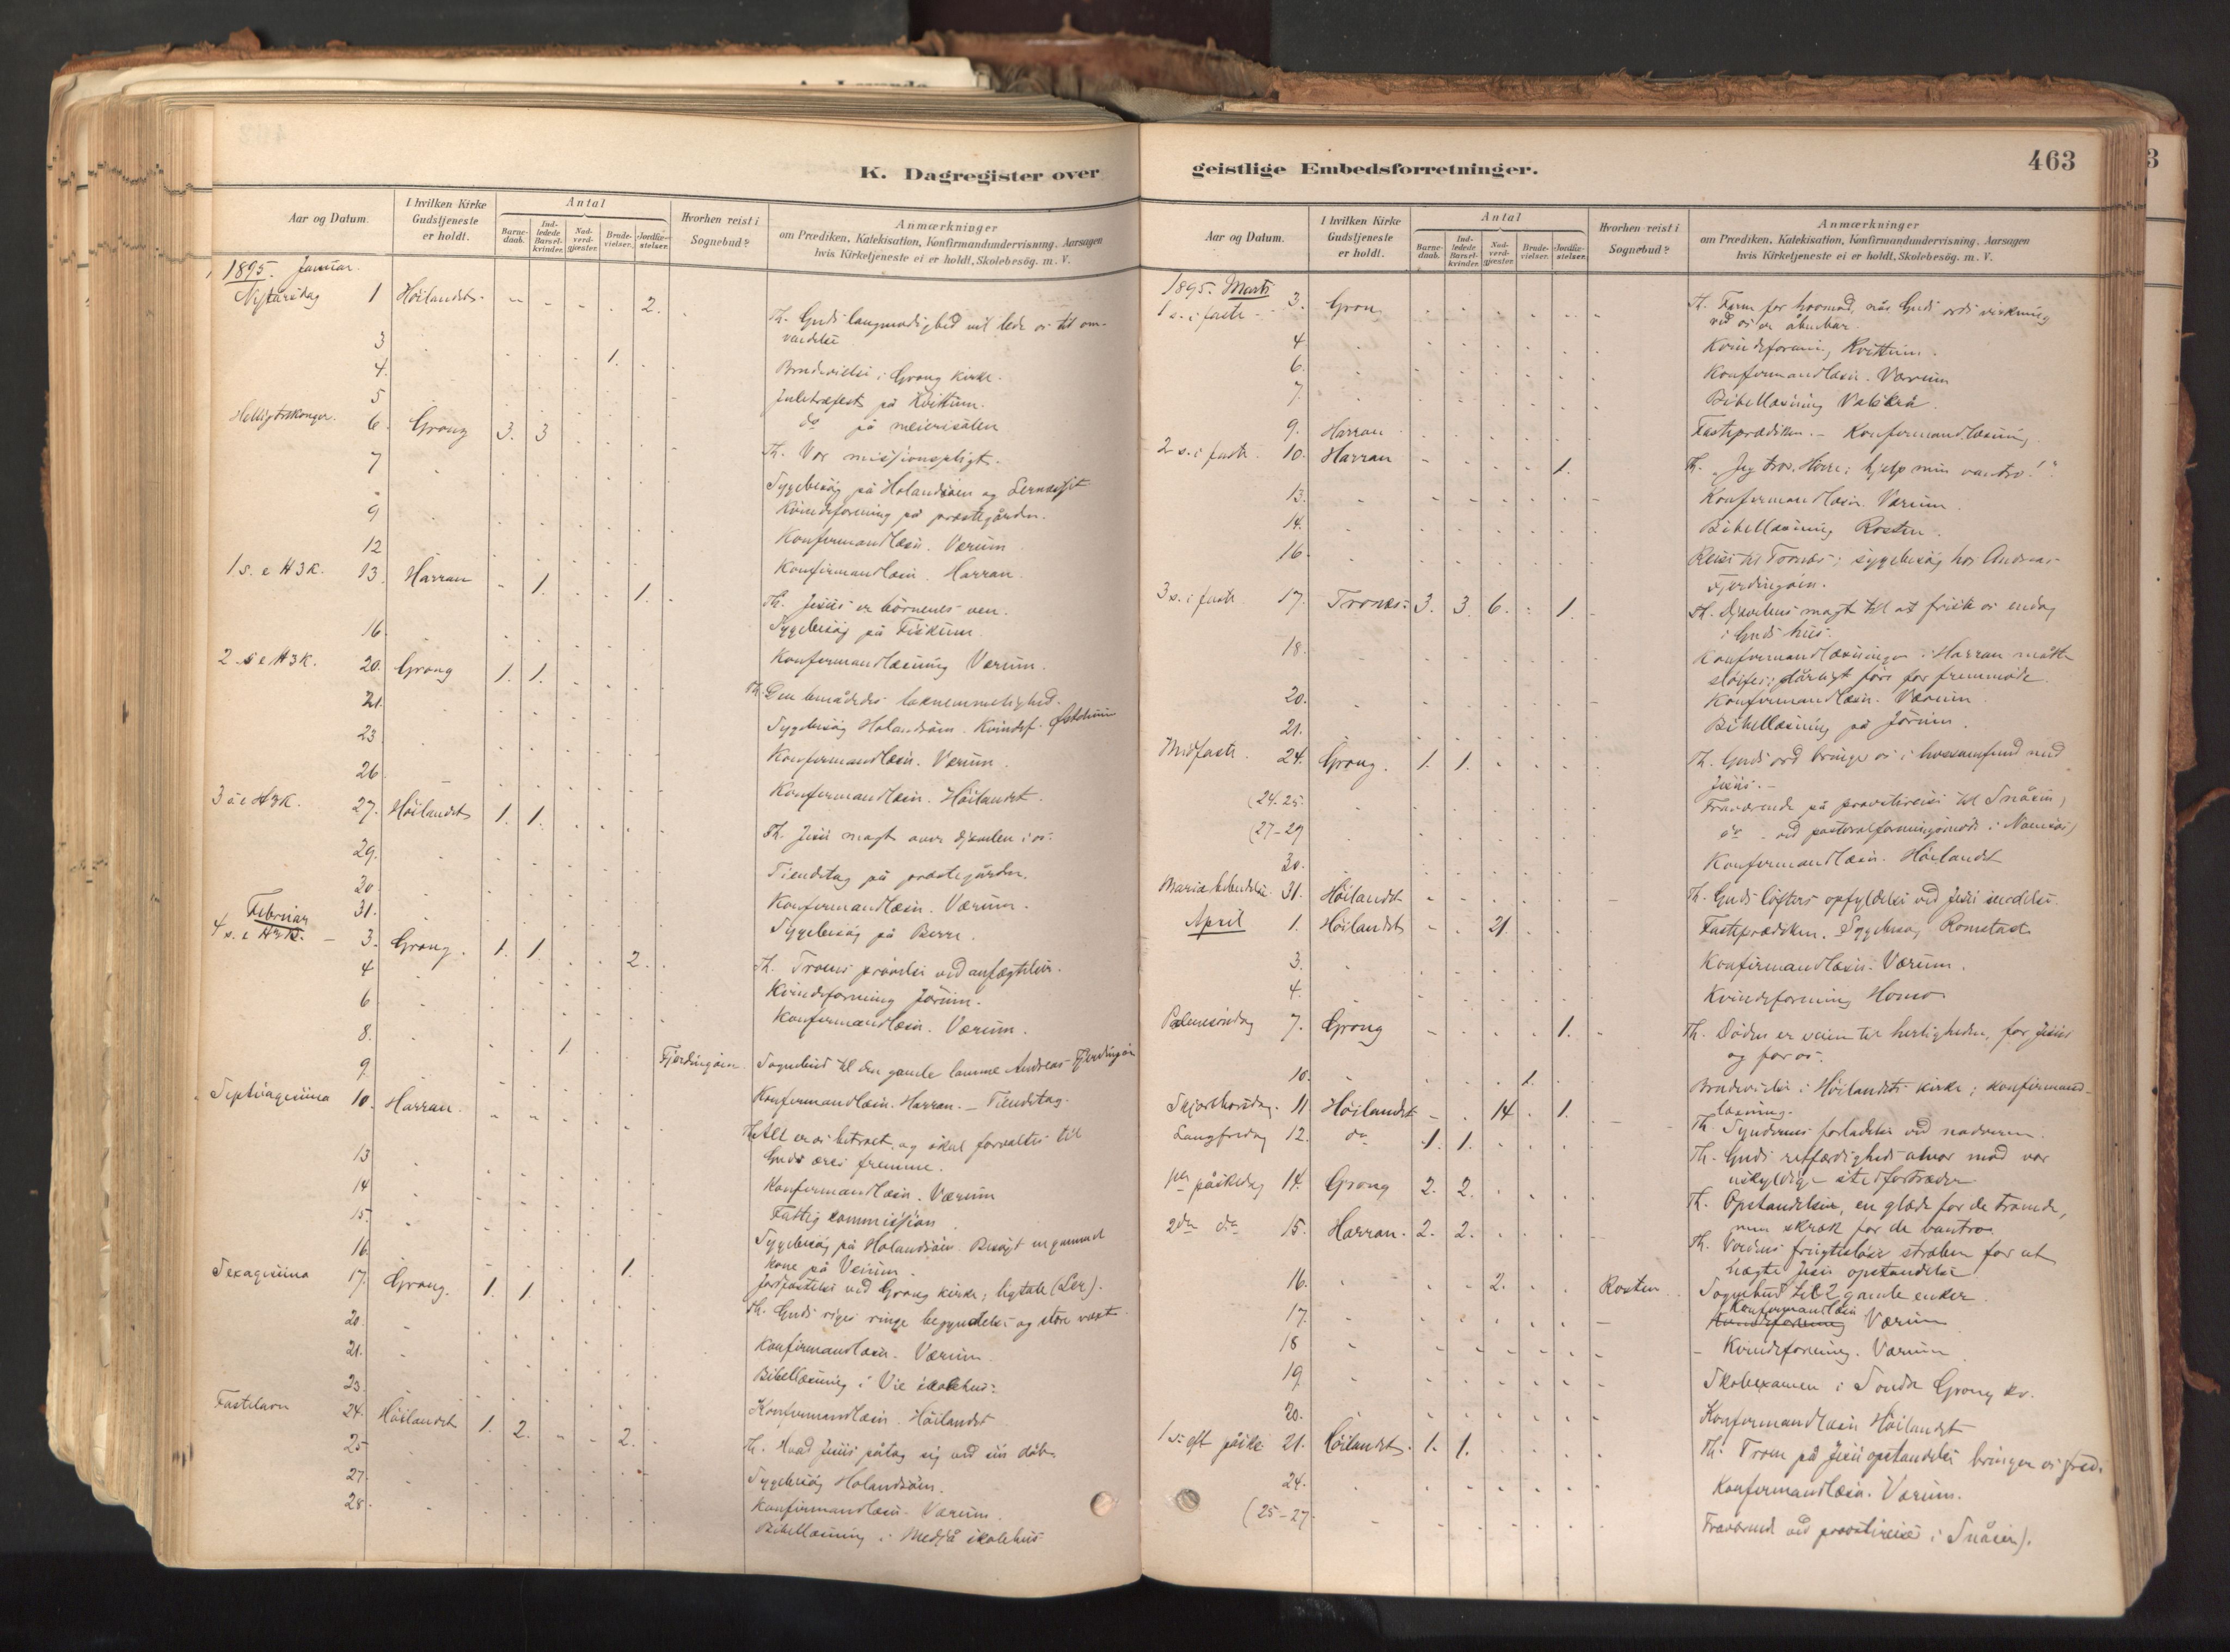 K. Dagregister over
Aar og Datum.
I hvilken Kirke
Gudstjeneste
er holdt.
Antal
Barne-
daab.
Ind-
ledede
Barsel-
kvinder.
Nad-
verd-
gjæster.
Brude-
vielser.
Jordfæ-
stelser.
Hvorhen reist i
Sognebud?
Anmærkninger
om Prædiken, Katekisation, Konfirmandundervisning, Aarsagen
hvis Kirketjeneste ei er holdt, Skolebesøg. m. V.
1895. Januar.
Nytårsdag 1 Höilandet 2. Th. Guds langmodighed vil lede os til om-
vendelse
3 1. Brudevielse i Grong kirke.
4. Juletræfest på Kvittum.
5 do på meierisalen
Helligtrekonger. 6. Grong 3. 3 Th. Vor missionspligt.
7 Sygebesög på Holandsöien og
Kvindeforening på præstegården.
9 Konfirmandlæsn. Værum
12 Konfirmandlæsn. Harran.
1 s. e H3K. 13. Harran 1. 1. Th. Jesus er börnenes ven.
Sygebesög på Fiskum.
16. Konfirmandlæsning Værum.
2. s e H3K. 20. Grong 1. 1. Th. Den benådedes taknemmelighed.
21. Sygebesög Holandsöien. Kvindef.
23 Konfirmandlæsn. Værum.
26 Konfirmandlæsn. Höilandet.
3 s e H3K. 27. Höilandet 1. 1. Th. Jesu magt over djævelen i os.
29. Tiendetag på præstegården.
30 Konfirmandlæsn. Værum.
31. Sygebesög på Berre.
Februar
4 s. e H3K. 3. Grong. 1. 1. 2. Th. Troens prövelse ved anfægtelser.
4 Kvindeforening Jörum.
6 Konfirmandlæsn. Værum.
8. 1. Fjerdingöien. Sognebud til den gamle lamme Andreas Fjerdingöien
9. Konfirmandlæsn. Harran. – Tiendetag.
Septuagesima 10. Harran. Th. Alt er os betroet og skal forvaltes til
Guds æres fremme.
13 Konfirmandlæsn. Værum
14 Fattigkommission
15. Sygebesög på Holandsöien. Besögt en gammel
kone på Veium.
16. 1. Jordfæstelse ved Grong kirke; ligtale (Ler).
Sexagesima 17. Grong. 1. 1. Th. Guds riges ringe begyndelse og store vækst
20. Konfirmandlæsn. Værum.
21. Bibellæsning i Vie skolehus.
23. Konfirmandlæsn. Höilandet
Fastelavn 24. Höilandet 1. 2. 2. Th. Hvad Jesus påtog sig ved sin dåb.
25 Sygebesög Holandsöien.
27 Konfirmandlæsn. Værum.
28. Bibellæsning i Medjå skolehus
geistlige Embedsforretninger.
463
Aar og Datum.
I hvilken Kirke
Gudstjeneste
er holdt.
Antal
Barne-
daab.
Ind-
ledede
Barsel-
kvinder.
Nad-
verd-
gjæster.
Brude-
vielser.
Jordfæ-
stelser.
Hvorhen reist i
Sognebud?
Anmærkninger
om Prædiken, Katekisation, Konfirmandundervisning, Aarsagen
hvis Kirketjeneste ei er holdt, Skolebesög. m. V.
1895. Marts
1 s. i faste 3. Grong Th. Faren for hovmod, når Guds ords virkning
ved os er åbenbar.
4. Kvindeforening Kvittum.
6. Konfirmandlæsn. Værum
7. Bibellæsning
9. Harran Fasteprædiken. – Konfirmandlæsning
2 s. i faste. 10. Harran 1. Th. „Jeg tror, Herre; hjelp min vantro!"
13. Konfirmandlæsn. Værum.
14. Bibellæsning Rosten.
16. Reise til Tronæs; sygebesög hos Andreas
Fjerdingöien.
3 s. i faste 17. Tronæs. 3. 3. 6. 1. Th. Djævelens magt til at friste os endog
i Guds hus.
18. Konfirmandlæsningen i Harran måtte
slöifes; dårligt före for fremmöde.
20. Konfirmandlæsn. Værum
21. Bibellæsning på Jörum.
Midfaste. 24. Grong. 1. 1. Th. Guds ord bringer os i livssamfund med
Jesus. –
(24. 25. Fraværende på provstireise til Snåsen)
(27–29 do ved pastoralforeningsmöde i Namsos)
30. Konfirmandlæsn. Höilandet
Mariæ bebudelse 31. Höilandet Th. Guds löfters opfyldelse ved Jesu
April 1. Höilandet 21. Fasteprædiken. Sygebesög Romstad
3. Konfirmandlæsn. Værum.
4. Kvindeforening Homo
Palmesöndag 7. Grong 1. Th. Döden er veien til herligheden, for Jesus
og for os.
10. 1. Brudevielse i Höilandets kirke; konfirmand-
læsning.
Skjærthorsdag. 11 Höilandet 14. 1. Th. Syndernes forladelse ved nadveren.
Langfredag 12. do 1. 1. Th. Guds retfærdigheds alvor mod vor
uskyldige stedfortræder
1ste påskedag 14. Grong 2. 2. Th. Opstandelsen, en glæde for de troende,
men skræk for de vantro.
2den do 15. Harran. 2. 2. Th. Verdens frugtesløse stræben for at
nægte Jesu opstandelse
16. 2. Rosten Sognebud til 2 gamle enker.
17. Konfirmandlæsn
Kvindeforening Værum
18 Kvindeforening. Værum
19. Skoleexamen i Söndre Grong kr.
20. Konfirmandlæsn Höilandet
1 s. eft påske 21. Höilandet. 1. 1. Th. Troen på Jesu opstandelse bringer os fred.
24. Konfirmandlæsn. Værum.
(25–27 Fraværende ved provstireise i Snåsen).